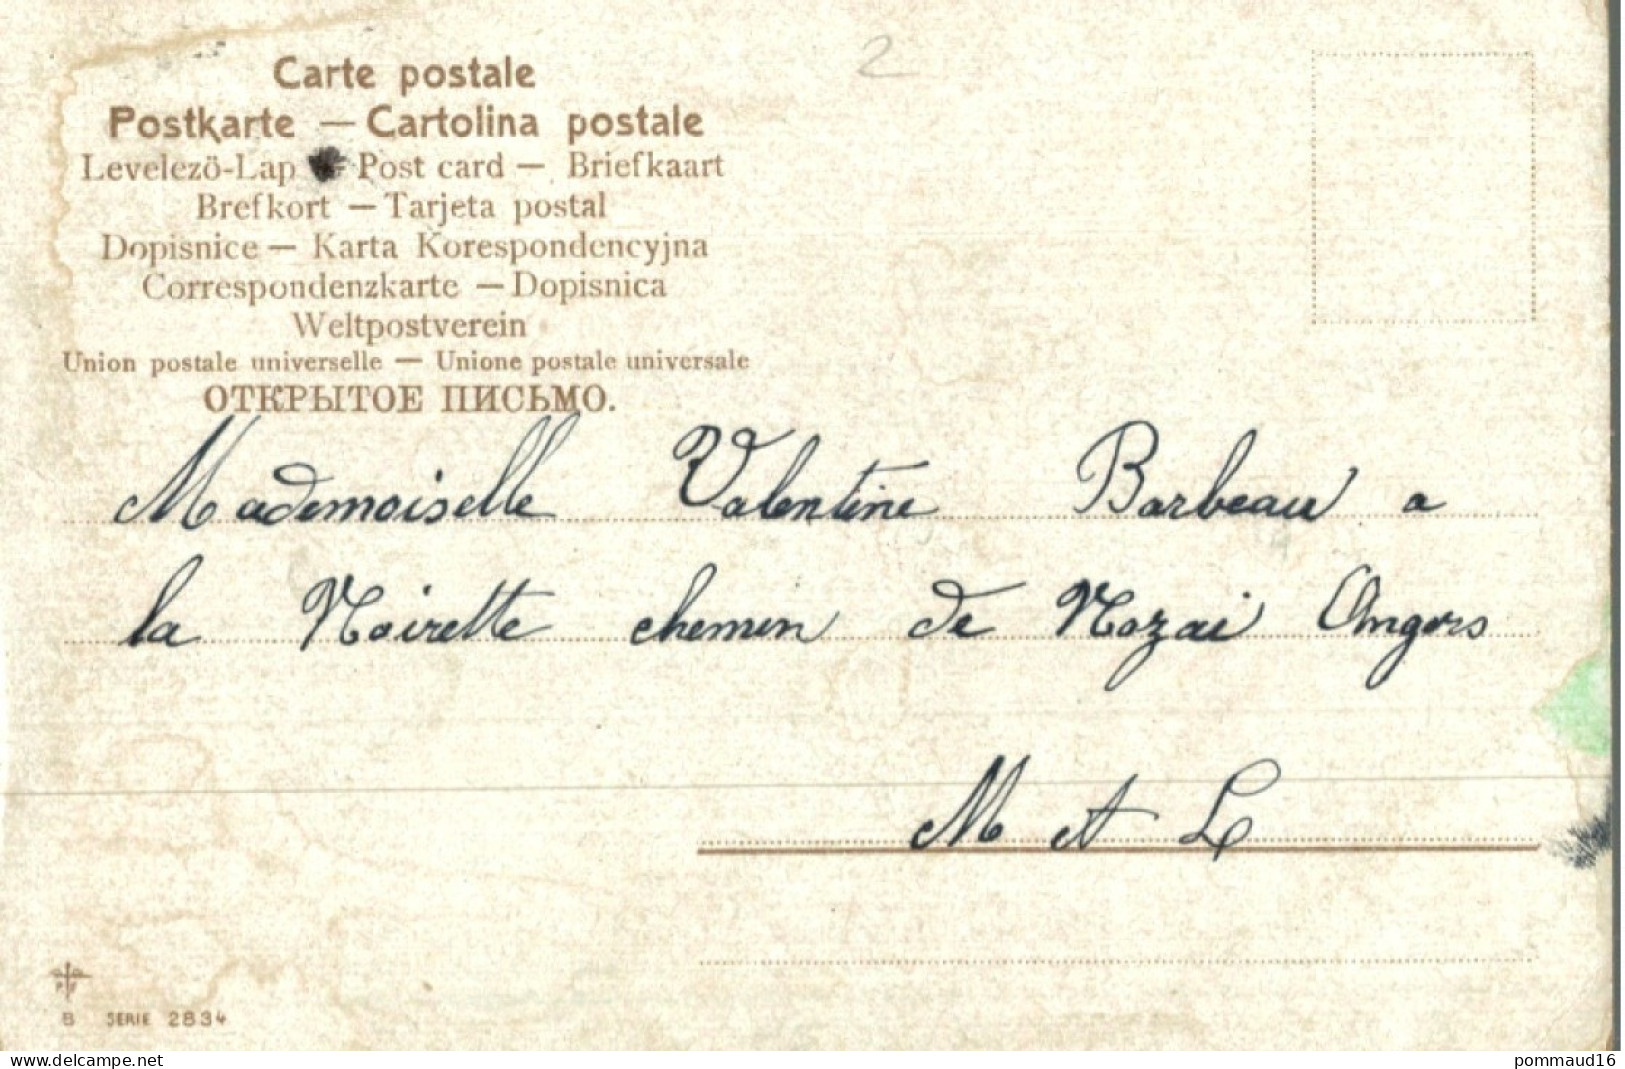 2
Carte postale
Postkarte — Cartolina postale
Levelező-Lap — Post card — Briefkaart
Brefkort — Tarjeta postal
Dopisnice — Karta Korespondencyjna
Correspondenzkarte — Dopisnica
Weltpostverein
Union postale universelle — Unione postale universale
ОТКРЫТОЕ ПИСЬМО.
Mademoiselle Valentine Barbeau a
la Noirette chemin de Nozai Angers
M et L
B SERIE 2834
www.delcampe.net
pommaud16